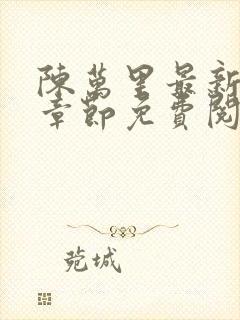 陳萬里最新
章節免費閱
菀城